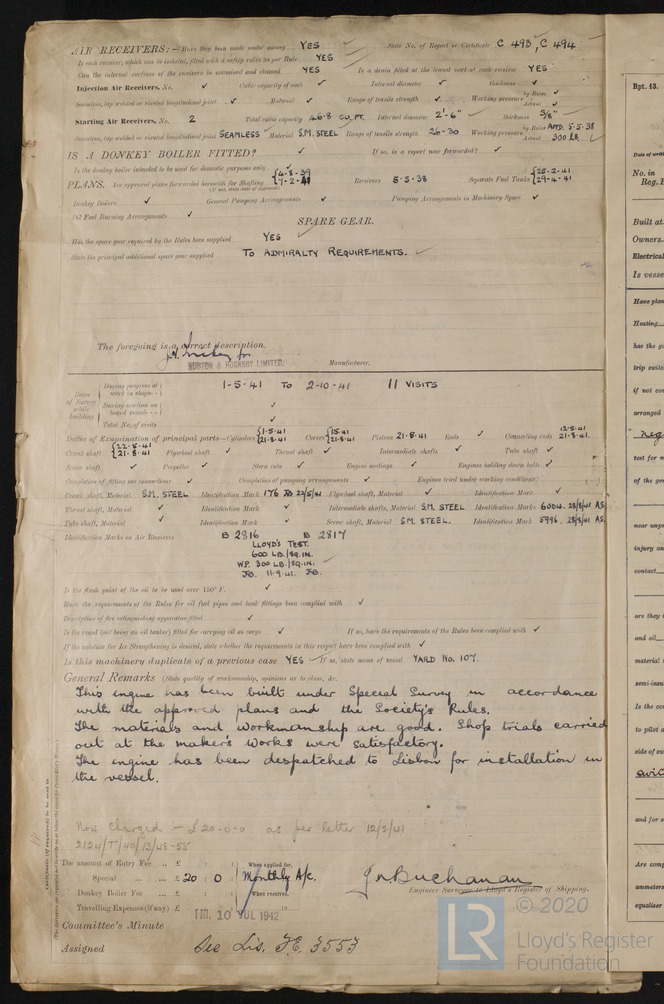 AIR RECEIVERS:— Have they been made under survey YES ✓ State No. of Report or Certificate C 493, C 494
Is each receiver, which can be isolated, fitted with a safety valve as per Rule YES ✓
Can the internal surfaces of the receivers be examined and cleaned YES Is a drain fitted at the lowest part of each receiver YES ✓
Injection Air Receivers, No. ✓ Cubic capacity of each ✓ Internal diameter ✓ thickness ✓
Seamless, lap welded or riveted longitudinal joint ✓ Material ✓ Range of tensile strength ✓ Working pressure by Rules ✓ Actual ✓
Starting Air Receivers, No. 2 Total cubic capacity 46·8 CU. FT. Internal diameter 2'-6" thickness 5/8"
Seamless, lap welded or riveted longitudinal joint SEAMLESS Material S.M. STEEL Range of tensile strength 26-30 Working pressure by Rules APPD. 5·5·38 Actual 300 LB. ✓
IS A DONKEY BOILER FITTED? ✓ If so, is a report now forwarded? ✓
Is the donkey boiler intended to be used for domestic purposes only ✓
PLANS. Are approved plans forwarded herewith for Shafting 4-8-39 7-2-41 Receivers 5·5·38 Separate Fuel Tanks 25·2·41 29·4·41
(If not, state date of approval)
Donkey Boilers ✓ General Pumping Arrangements ✓ Pumping Arrangements in Machinery Space ✓
Oil Fuel Burning Arrangements ✓
SPARE GEAR.
Has the spare gear required by the Rules been supplied YES ✓
State the principal additional spare gear supplied TO ADMIRALTY REQUIREMENTS. ✓
The foregoing is a correct description,
for
RUSTON & HORNSBY LIMITED. Manufacturer.
Dates of Survey while building
During progress of work in shops - - 1-5-41 TO 2-10-41 11 VISITS
During erection on board vessel - - - ✓
Total No. of visits ✓
Dates of Examination of principal parts—Cylinders 1·5·41 21·8·41 Covers 21·8·41 Pistons 21·8·41 Rods ✓ Connecting rods 12·5·41 21·8·41.
Crank shaft 22·5·41 21·8·41 Flywheel shaft ✓ Thrust shaft ✓ Intermediate shafts ✓ Tube shaft ✓
Screw shaft ✓ Propeller ✓ Stern tube ✓ Engine seatings ✓ Engines holding down bolts ✓
Completion of fitting sea connections ✓ Completion of pumping arrangements ✓ Engines tried under working conditions ✓
Crank shaft, Material S.M. STEEL Identification Mark 176 JB 22/5/41 Flywheel shaft, Material ✓ Identification Mark ✓
Thrust shaft, Material ✓ Identification Mark ✓ Intermediate shafts, Material S.M. STEEL Identification Marks 6004. 28/8/41 A.S.
Tube shaft, Material ✓ Identification Mark ✓ Screw shaft, Material S.M. STEEL. Identification Mark 5996. 28/8/41 A.S.
Identification Marks on Air Receivers B 2816 B 2817
LLOYD'S TEST.
600 LB./SQ.IN.
W.P. 300 LB./SQ.IN. ✓
J.B. 11·9·41. J.B.
Is the flash point of the oil to be used over 150° F. ✓
Have the requirements of the Rules for oil fuel pipes and tank fittings been complied with ✓
Description of fire extinguishing apparatus fitted ✓
Is the vessel (not being an oil tanker) fitted for carrying oil as cargo ✓ If so, have the requirements of the Rules been complied with ✓
If the notation for Ice Strengthening is desired, state whether the requirements in this respect have been complied with ✓
Is this machinery duplicate of a previous case YES ✓ If so, state name of vessel YARD No. 107.
General Remarks (State quality of workmanship, opinions as to class, &c.
This engine has been built under Special Survey in accordance
with the approved plans and the Society's Rules.
The materials and workmanship are good. Shop trials carried
out at the maker's works were satisfactory.
The engine has been despatched to Lisbon for installation in
the vessel.
Now charged — £20-0-0 as per letter 12/2/41
2124/T/40/13/48-55
The amount of Entry Fee .. £ : : When applied for,
Special ... ... £ 20 : 0 : Monthly A/c.
Donkey Boiler Fee ... £ : : When received,
Travelling Expenses (if any) £ : : 19
Jn. Buchanan
Engineer Surveyor to Lloyd's Register of Shipping.
FRI. 10 JUL 1942
Committee's Minute
Assigned See Lis. F.E. 3553
© 2020
LR
Lloyd's Register
Foundation
Rpt. 13.
Date of writ
No. in
Reg. B
Built at
Owners
Electrical
Is vesse
Have plan
Heating
has the go
trip switc
if not co
arranged
neg
test for m
of the gen
near unpr
injury an
contact
are they i
and oil
material
semi-insu
Is the co
to pilot a
side of sw
swit
and for e
Are comp
ammeters
equaliser